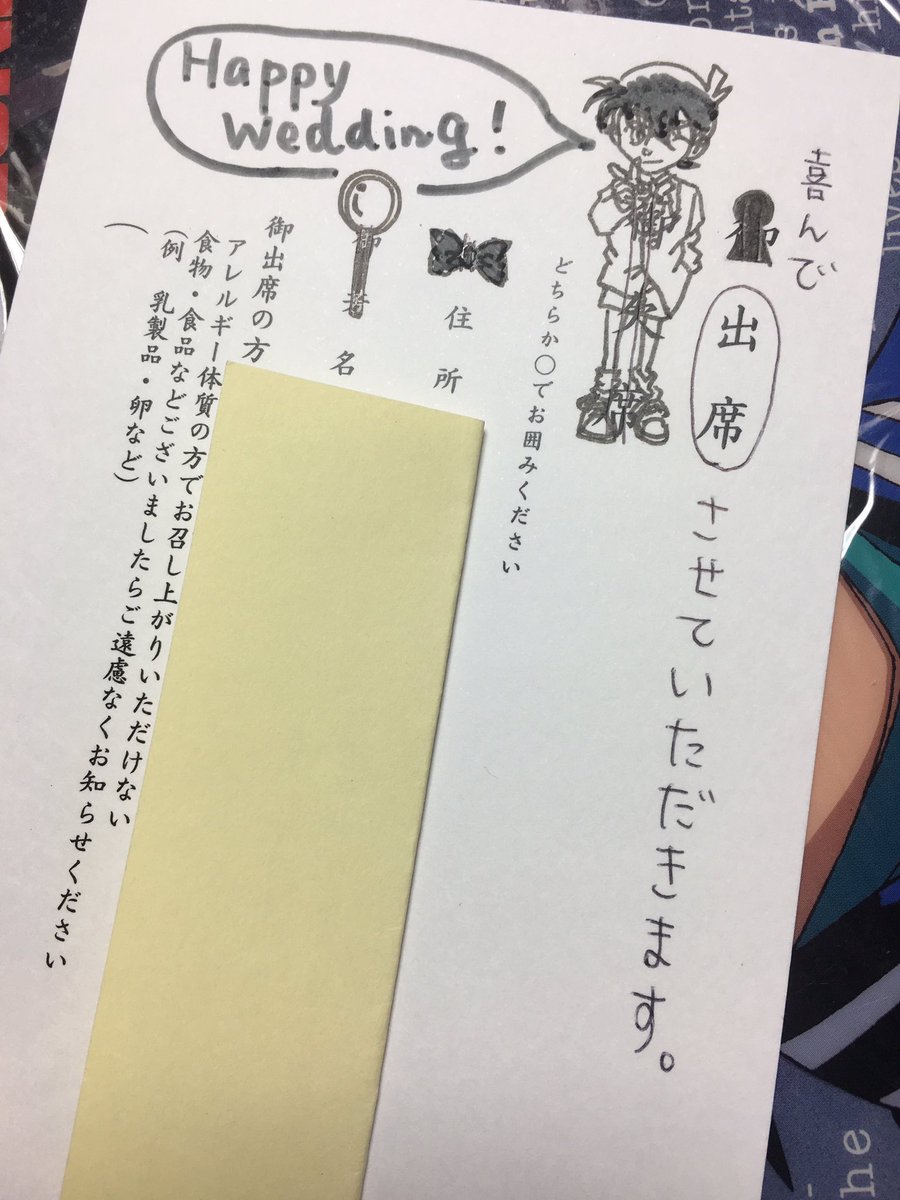 Happy
wedding!
喜んで
御出席させていただきます。
御欠席
どちらか○でお囲みください
住所
御 名
御出席の方
アレルギー体質の方でお召し上がりいただけない
食物・食品などございましたらご遠慮なくお知らせください
（例　乳製品・卵など）
（